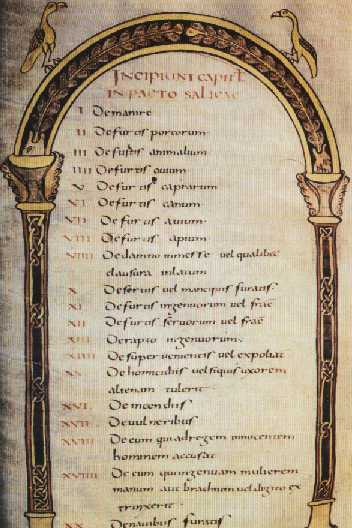 INCIPIUNT CAPITL
IN PACTO SALICAE
I De manire
II De furtis porcorum
III De furtis animalium
IIII De furtis ovium
V De furtis caprarum
VI De furtis canum
VII De furtis avium
VIII De furtis apium
VIIII De damno in messe vel qualibet
clausura inlatum
X De servis vel mancipiis furatis
XI De furtis ingenuorum vel
XII De furtis servorum vel
XIII De rapto ingenuorum
XIIII De super venientis vel expoliat
XV De homicidiis vel si quis uxorem
alienam tulerit
XVI De incendiis
XVII De vulneribus
XVIII De eum qui ad regem innocentem
hominem accusat
XVIIII De eum qui ingenuam mulierem
manum aut brachium vel digito ex
trinxerit
XX De navibus furatis